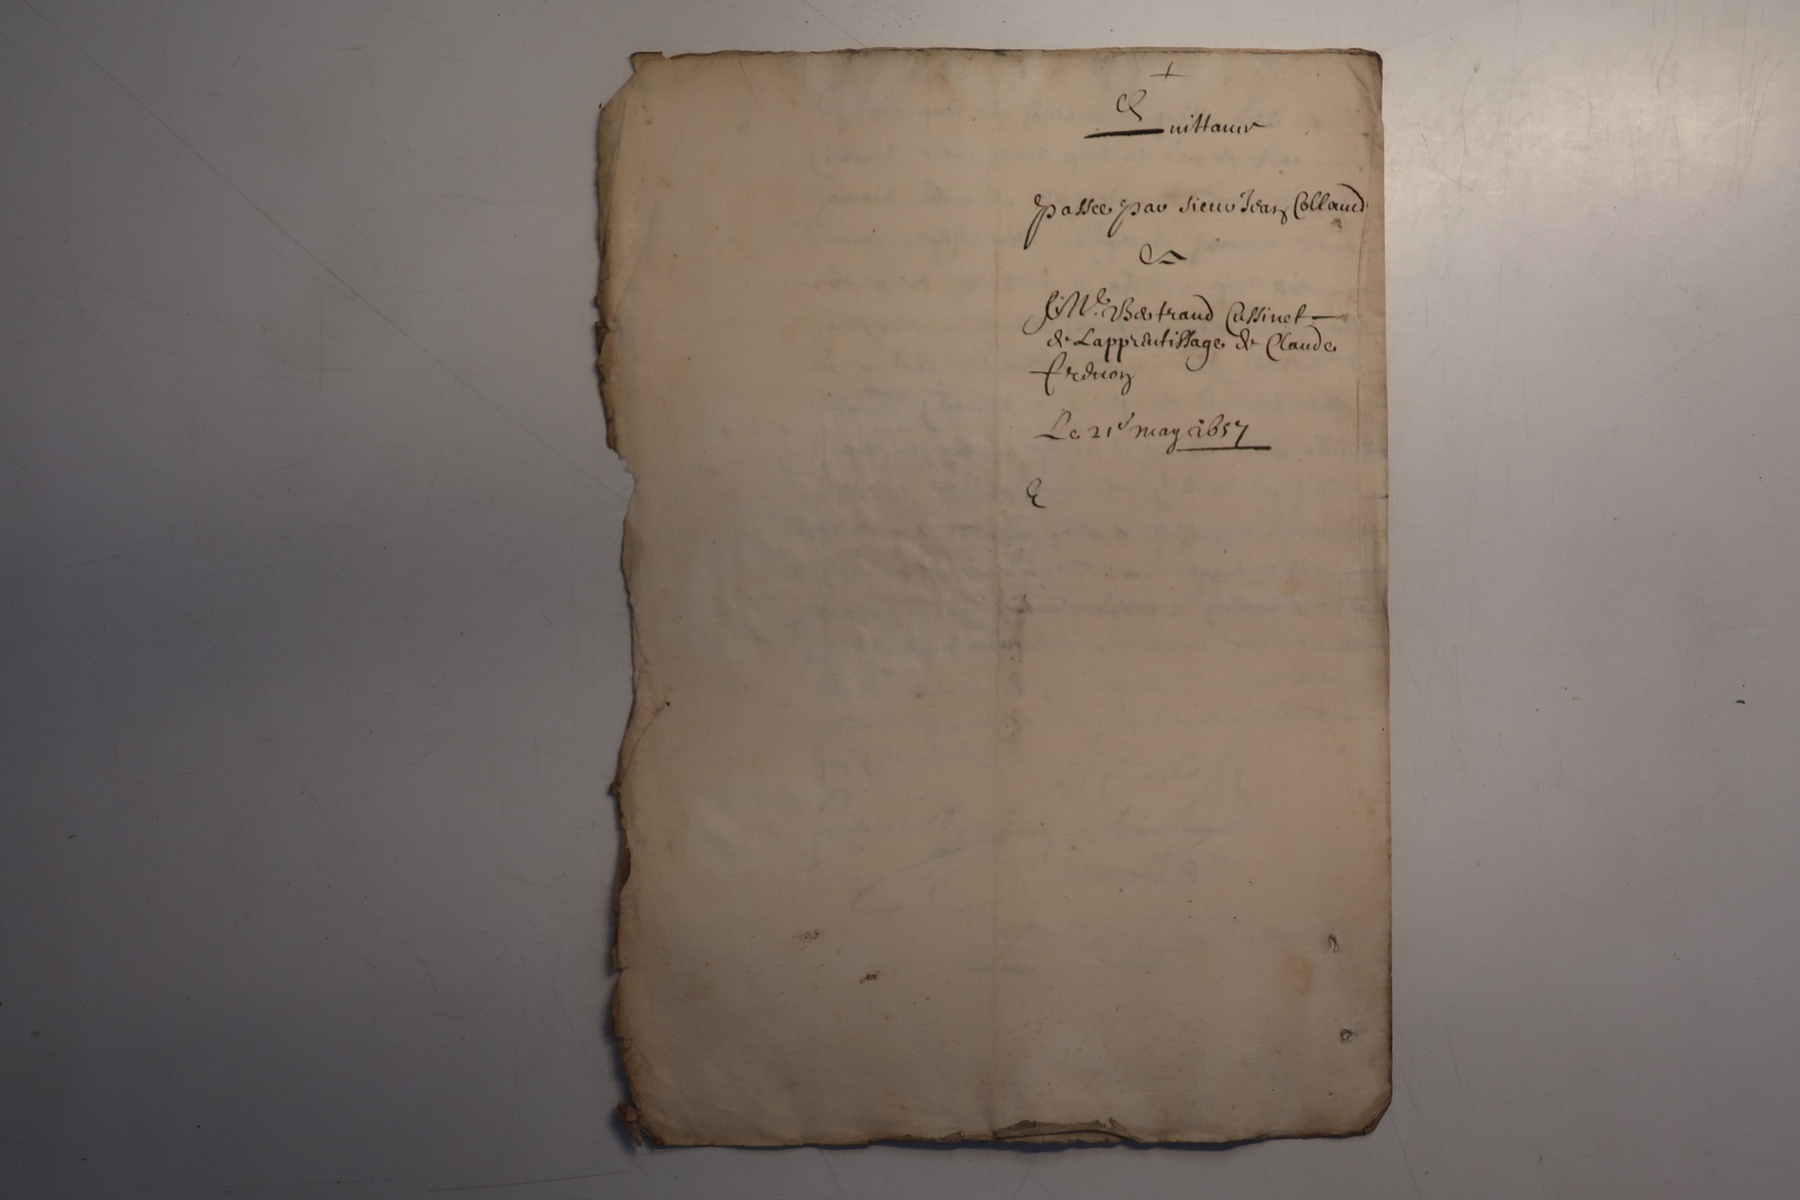 Quittance
passee par sieur Jean Colland
A
Me Bertrand Cussinet
de Lapprentissage de Claude
Le 21e may 1657